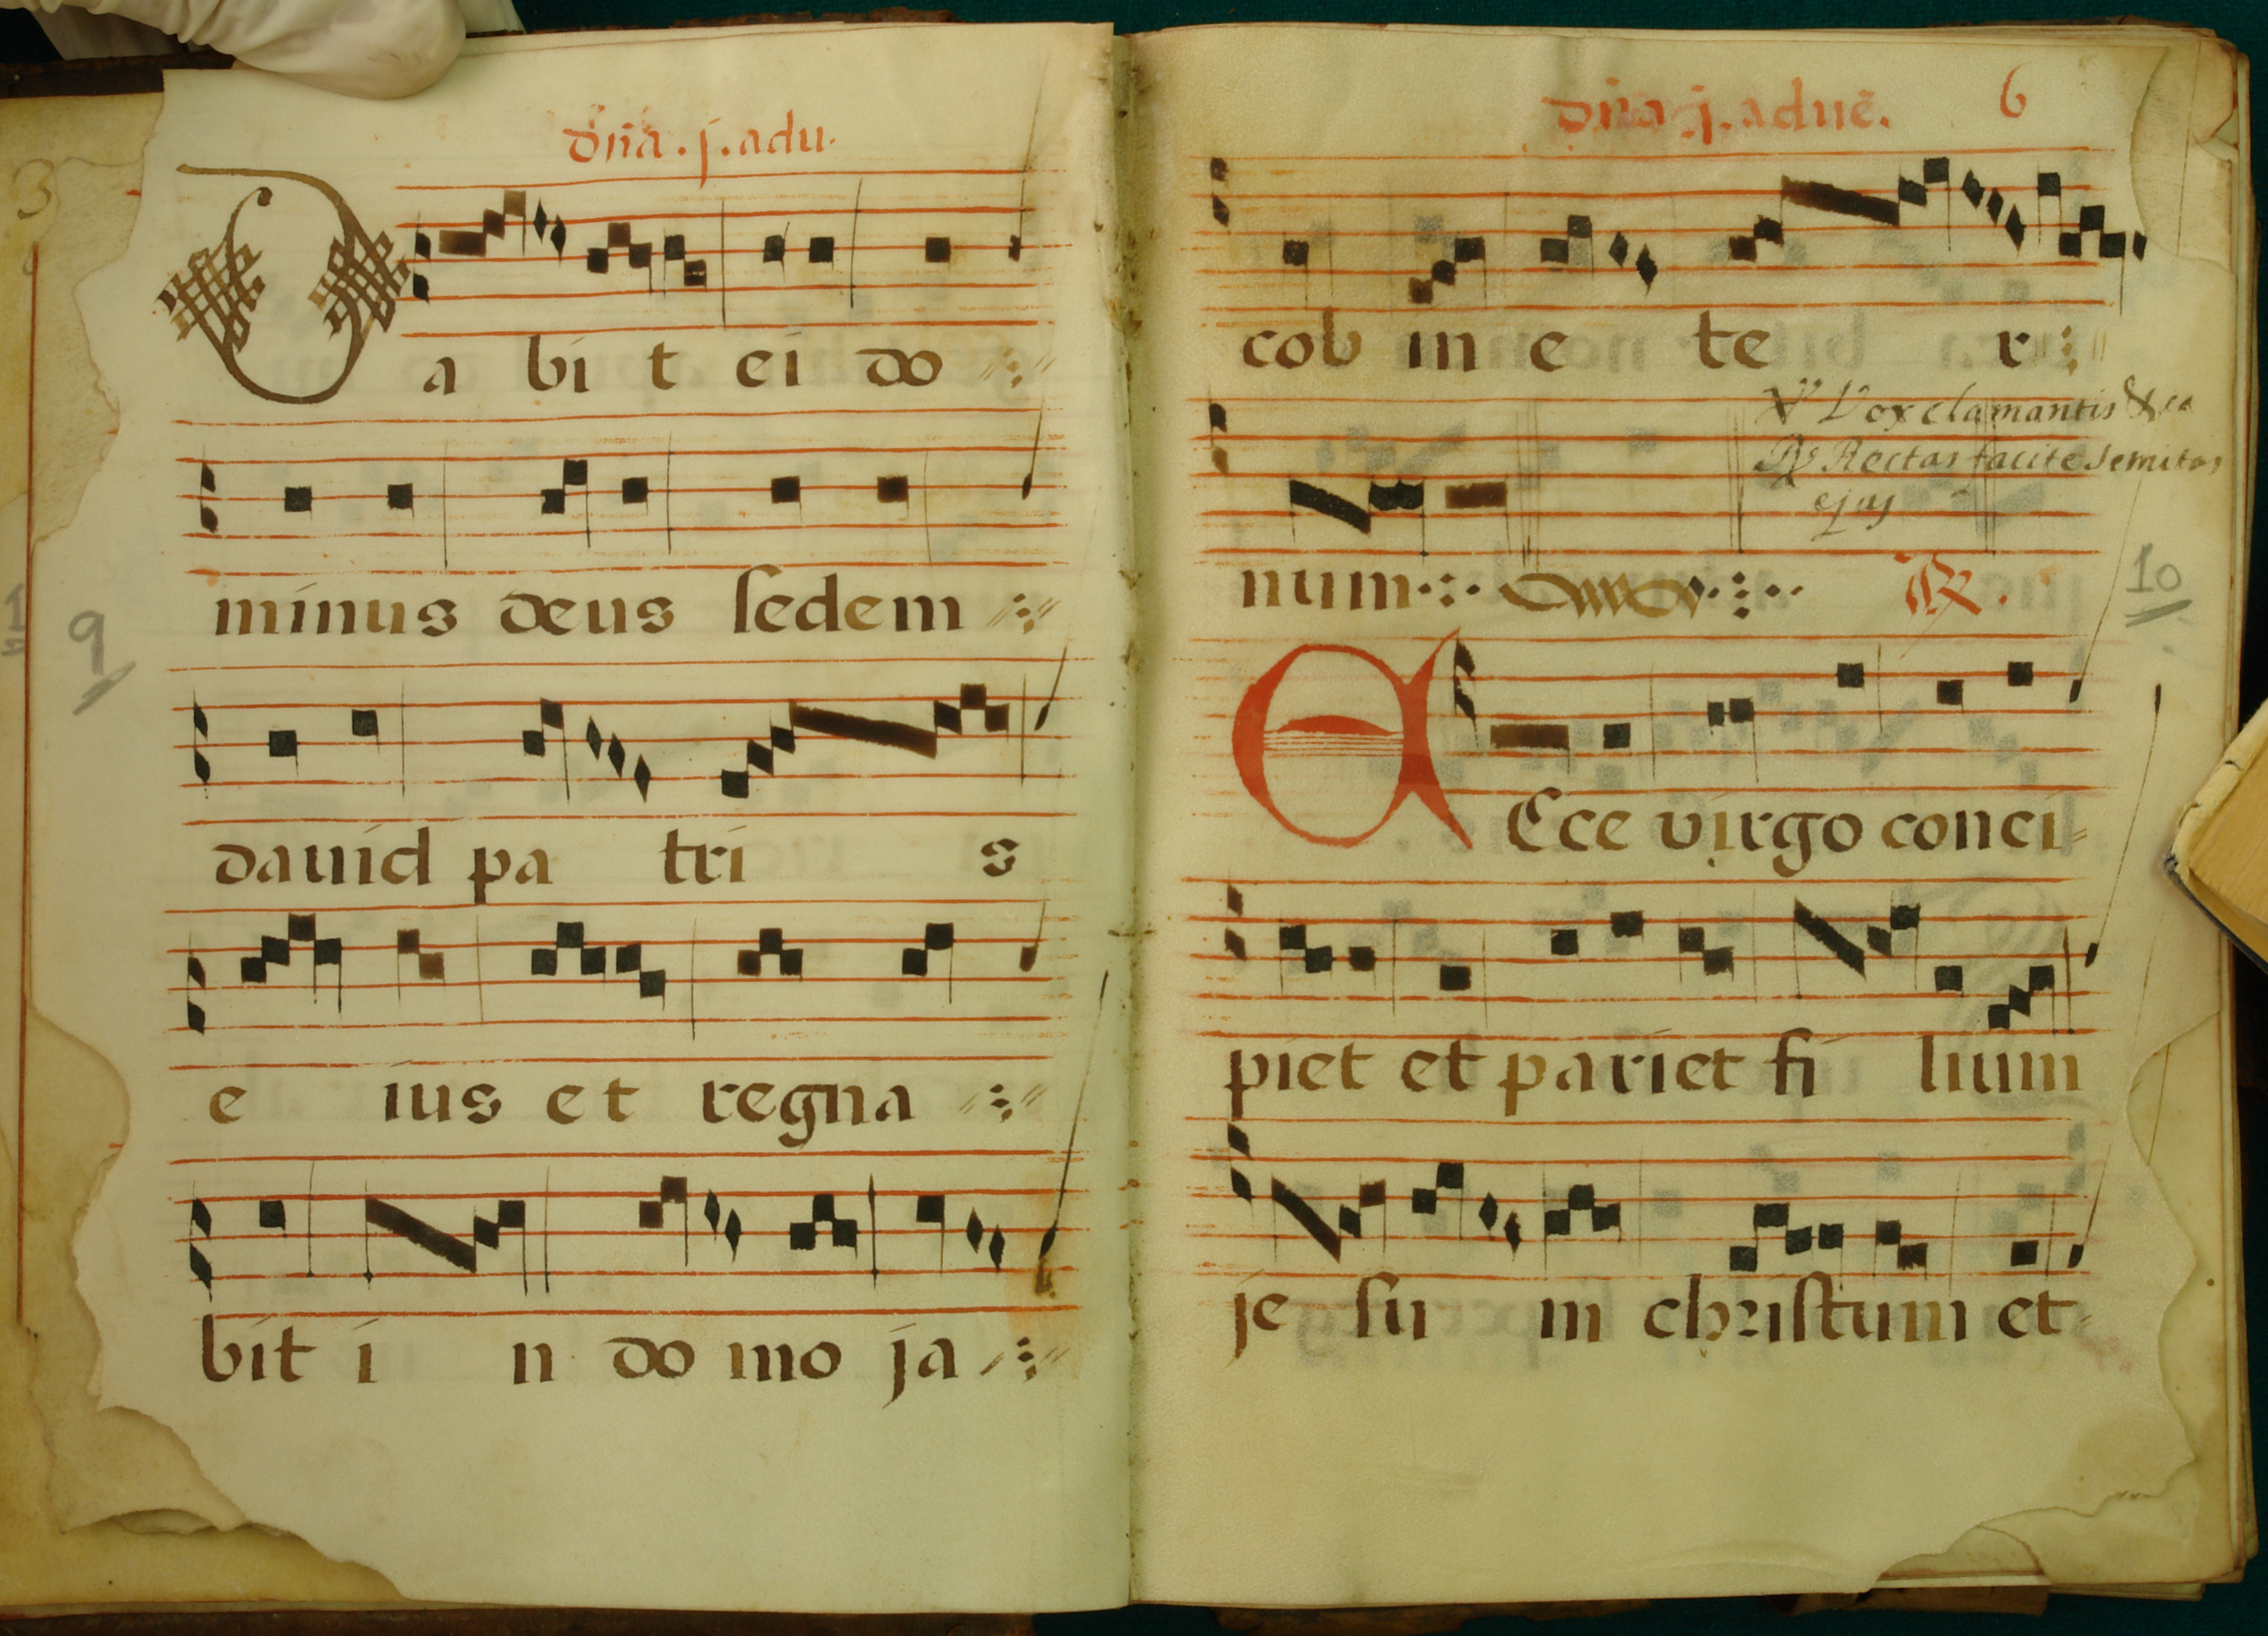 dña . j . adu.
Da bi t ei do
minus deus ſedem
dauid pa tri s
e ius et regna
bit i n do mo ja
9
3
dña j. aduē. 6
cob in e te r
℣ Vox clamantis &ca
℟ Rectas facite semitas
ejus
num ℟.
10
ECce virgo conci=
piet et pariet fi lium
je ſu m chriſtum et